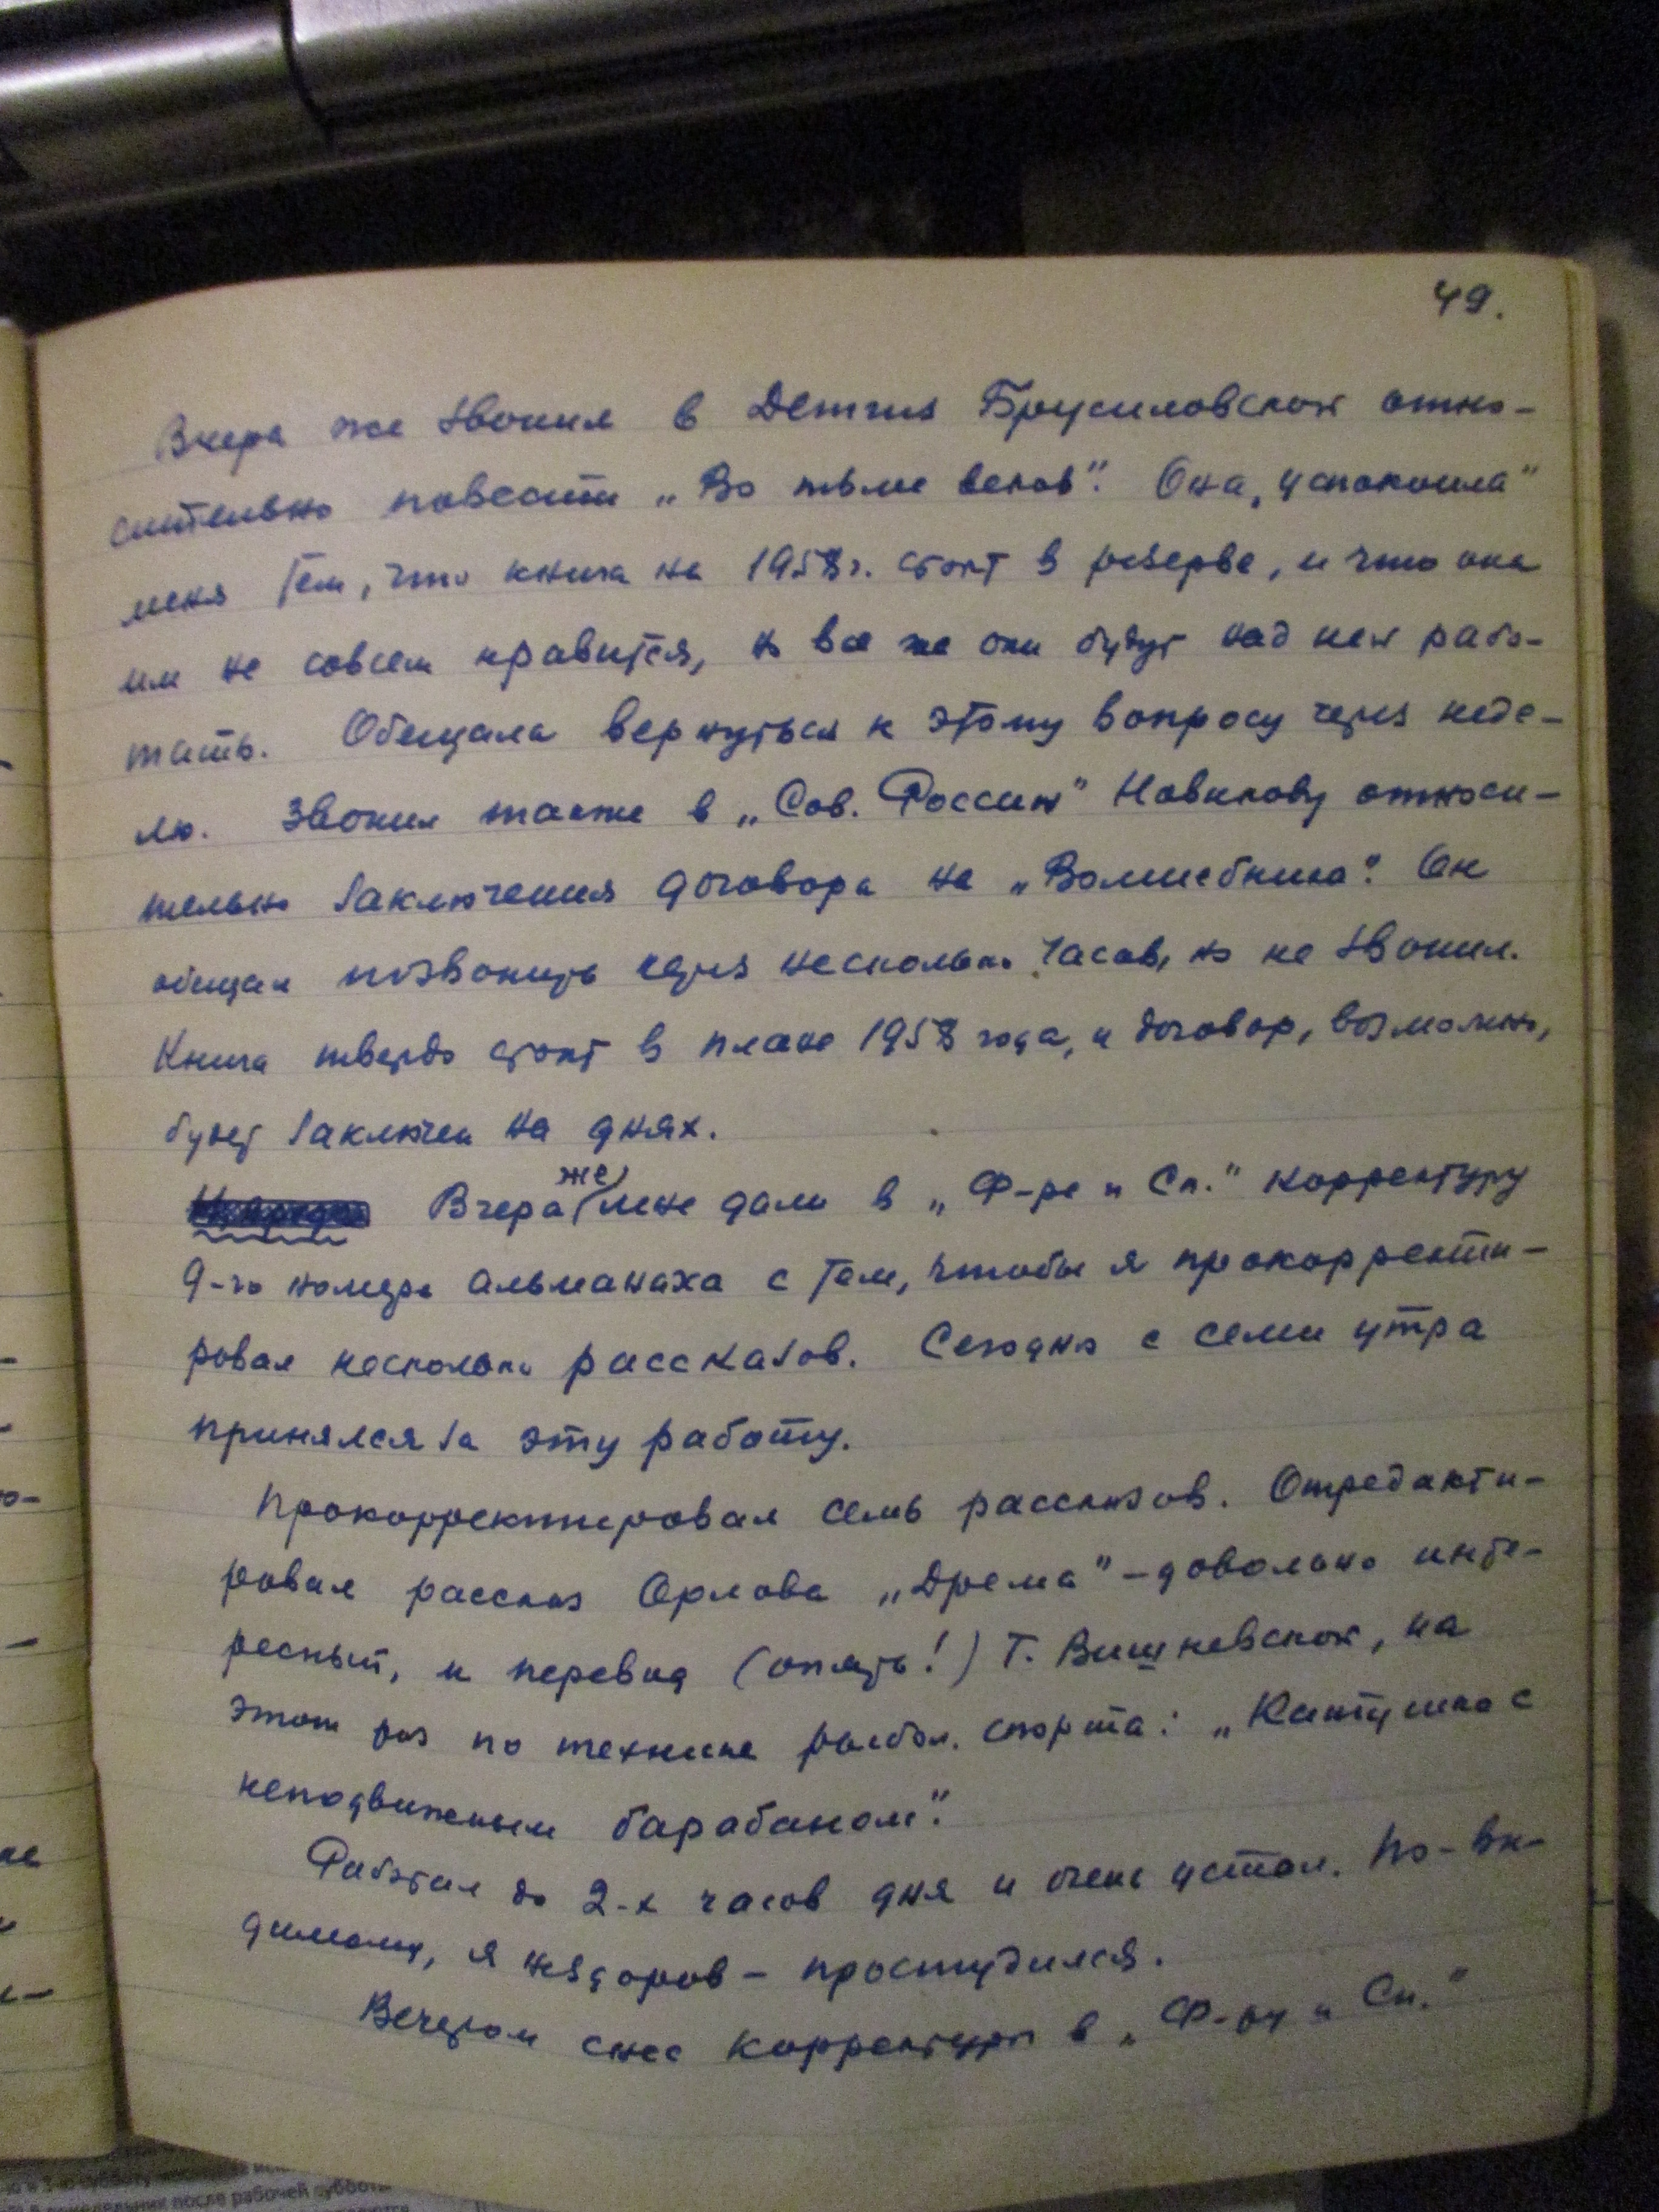 49.
Вчера же звонил в Детгиз Брусиловской отно-
сительно повести „Во тьме веков". Она „успокоила"
меня тем, что книга на 1958 г. стоит в резерве, и что она
им не совсем нравится, но все же они будут над ней рабо-
тать. Обещала вернуться к этому вопросу через неде-
лю. Звонил также в „Сов. Россию" Новикову относи-
тельно заключения договора на „Волшебника". Он
обещал позвонить через несколько часов, но не звонил.
Книга твердо стоит в плане 1958 года, и договор, возможно,
будет заключен на днях.
Вчера же мне дали в „Ф-ре и Сп." корректуру
9-го номера альманаха с тем, чтобы я прокорректи-
ровал несколько рассказов. Сегодня с семи утра
принялся за эту работу.
Прокорректировал семь рассказов. Отредакти-
ровал рассказ Орлова „Дрема" – довольно инте-
ресный, и перевод (опять!) Т. Вишневской, на
этот раз по технике рыбол. спорта: „Катушка с
неподвижным барабаном".
Работал до 2-х часов дня и очень устал. По-ви-
димому, я нездоров – простудился.
Вечером снес корректуру в „Ф-ру и Сп."
ю-
-ю и 3-ю субботу
в понедельник после рабочей субботы